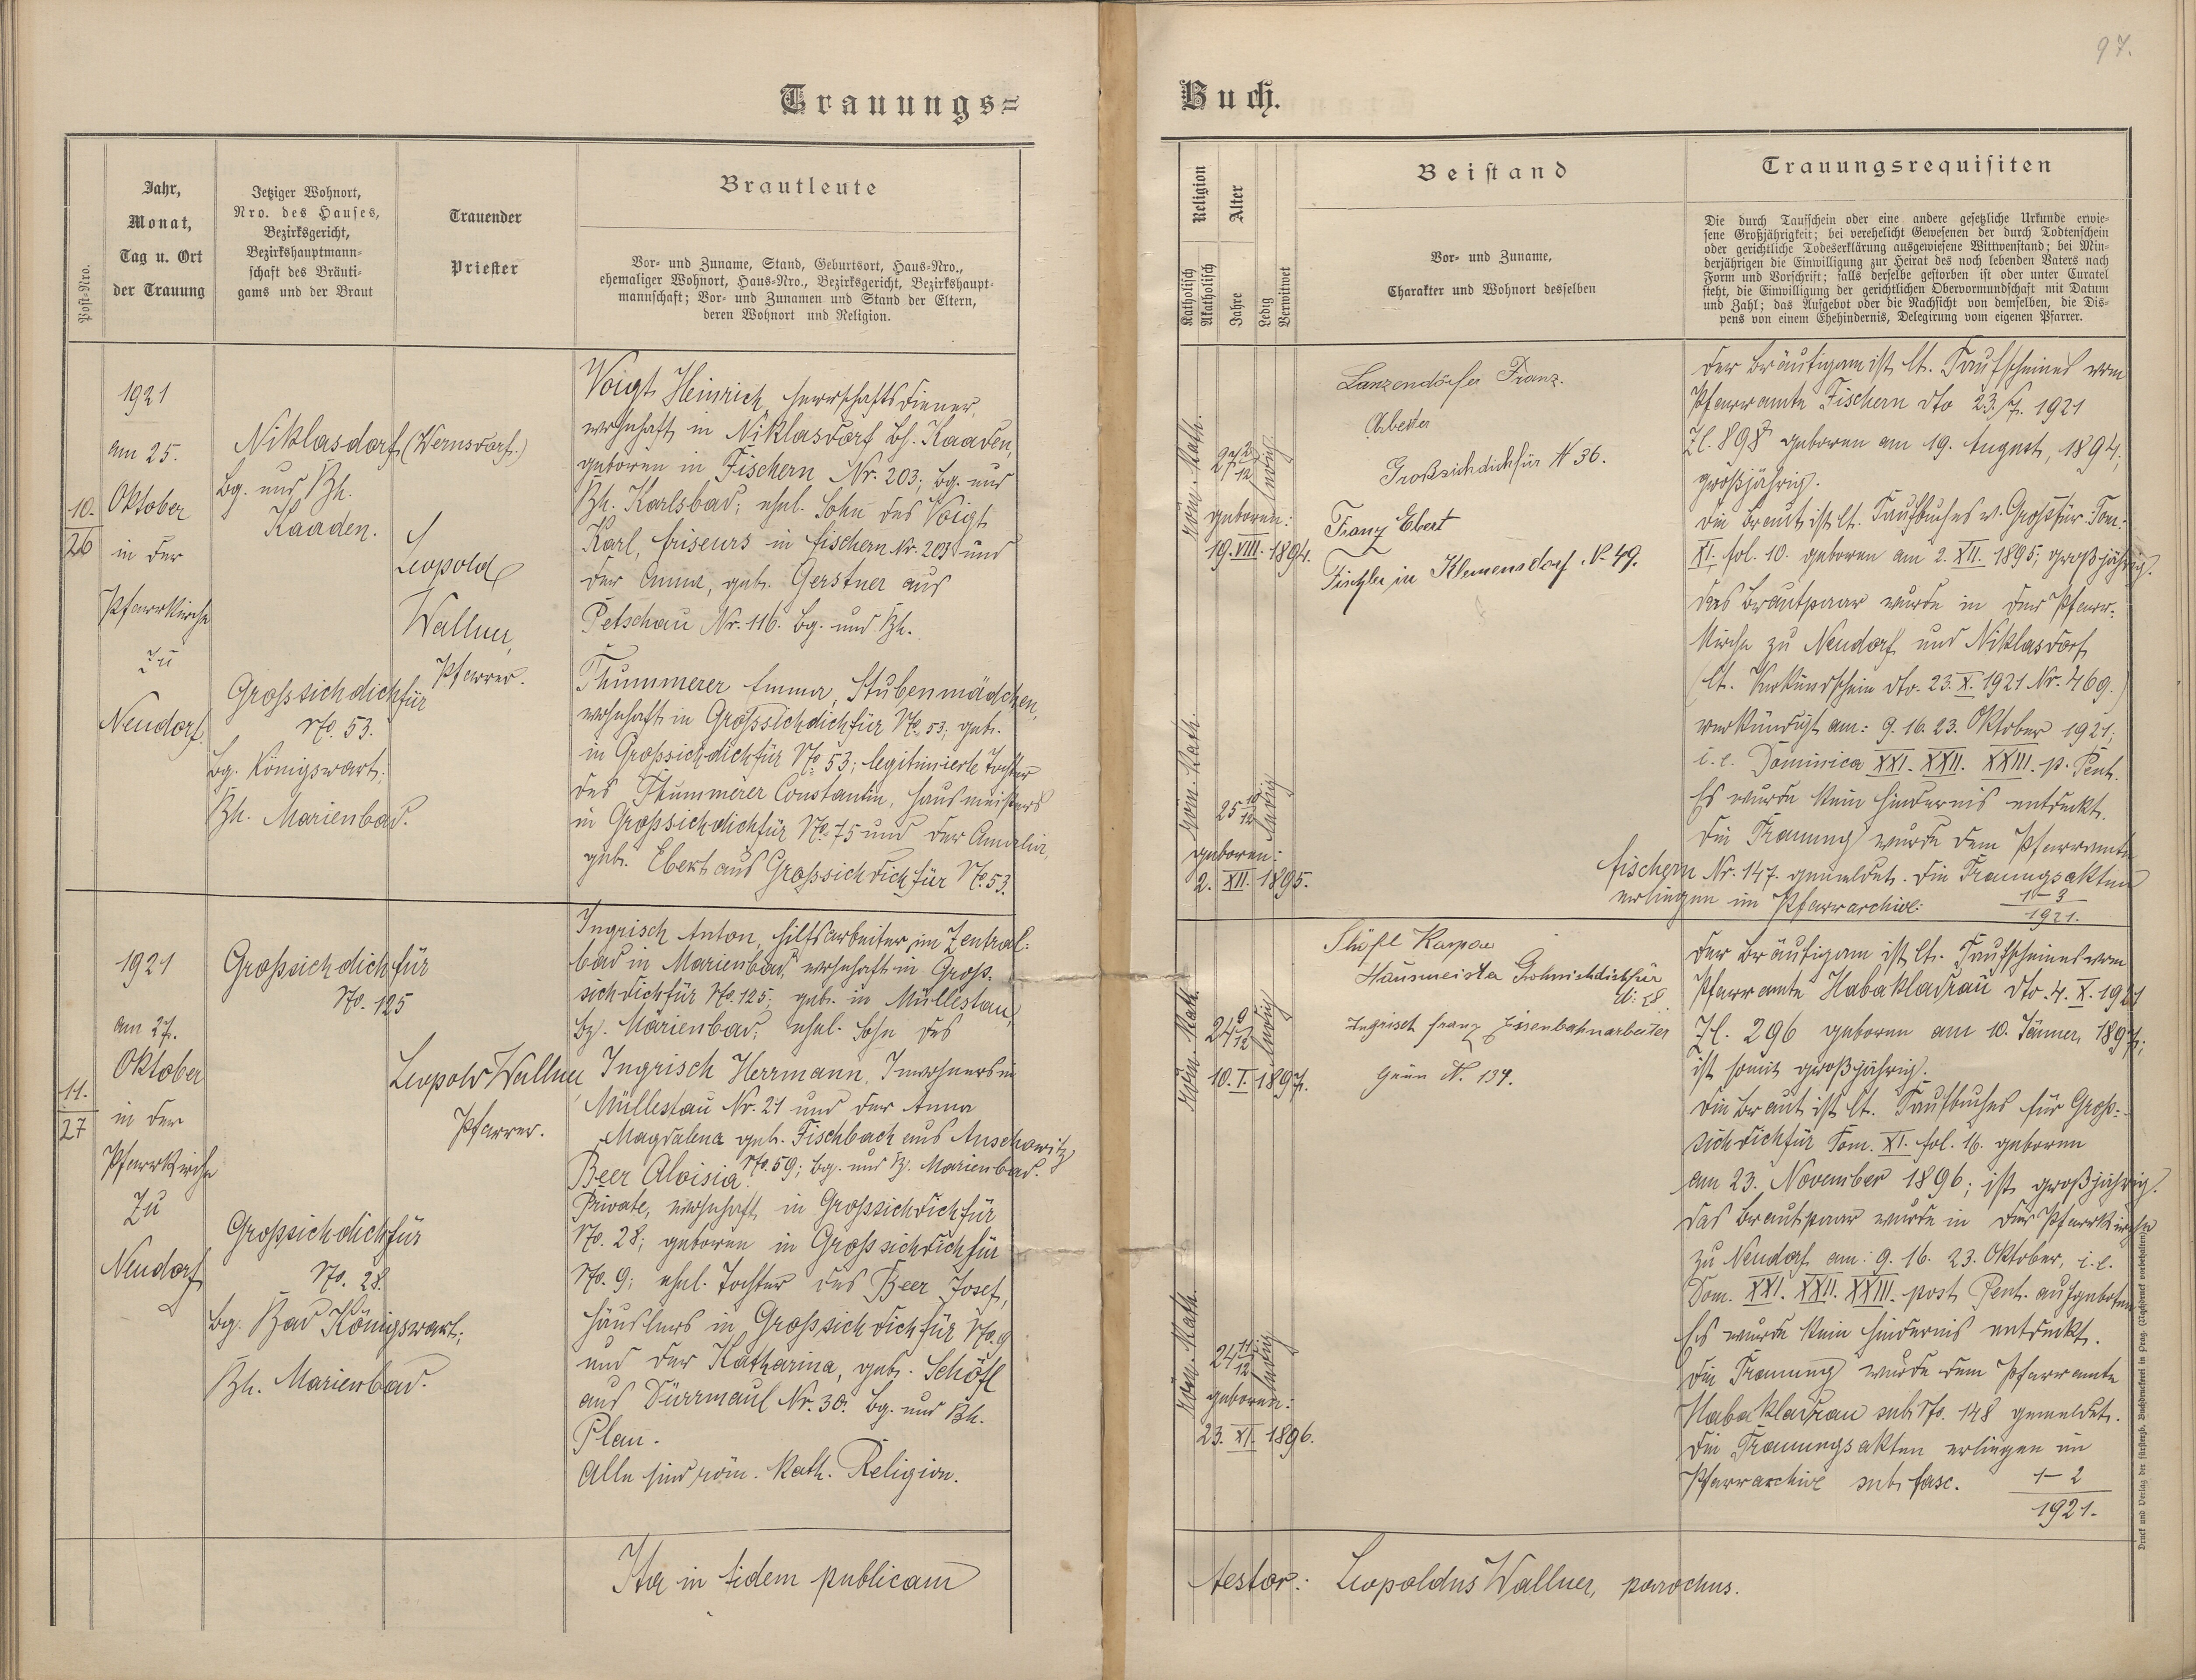 97.
Trauungs=
Buch.
Post-Nro.
Jahr,
Monat,
Tag u. Ort
der Trauung
Jetziger Wohnort,
Nro. des Hauses,
Bezirksgericht,
Bezirkshauptmann-
schaft des Bräuti-
gams und der Braut
Trauender
Priester
Brautleute
Vor- und Zuname, Stand, Geburtsort, Haus-Nro.,
ehemaliger Wohnort, Haus-Nro., Bezirksgericht, Bezirkshaupt-
mannschaft; Vor- und Zunamen und Stand der Eltern,
deren Wohnort und Religion.
Religion
Katholisch
Akatholisch
Alter
Jahre
Ledig
Verwitwet
Beistand
Vor- und Zuname,
Charakter und Wohnort desselben
Trauungsrequisiten
Die durch Taufschein oder eine andere gesetzliche Urkunde erwie-
sene Großjährigkeit; bei verehelicht Gewesenen der durch Todtenschein
oder gerichtliche Todeserklärung ausgewiesene Wittwenstand; bei Min-
derjährigen die Einwilligung zur Heirat des noch lebenden Vaters nach
Form und Vorschrift; falls derselbe gestorben ist oder unter Curatel
steht, die Einwilligung der gerichtlichen Obervormundschaft mit Datum
und Zahl; das Aufgebot oder die Nachsicht von demselben, die Dis-
pens von einem Ehehindernis, Delegirung vom eigenen Pfarrer.
10.
26
1921
am 25.
Oktober
in der
Pfarrkirche
zu
Neudorf.
Niklasdorf (Wernsdorf.)
Bg. und Bh.
Kaaden.
Grossichdichfür
No. 53.
Bg. Königswart;
Bh. Marienbad.
Leopold
Wallner,
Pfarrer.
Voigt Heinrich, Herrschaftsdiener,
wohnhaft in Niklasdorf Bh. Kaaden,
geboren in Fischern Nr. 203; Bg. und
Bh. Karlsbad; ehel. Sohn des Voigt
Karl, Friseurs in Fischern Nr. 203 und
der Anna, geb. Gerstner aus
Petschau Nr. 116. Bg. und Bh.
Thummerer Emma, Stubenmädchen,
wohnhaft in Grossichdichfür No. 53; geb.
in Grossichdichfür No. 53; legitimierte Tochter
des Thummerer Constantin, Hausmeisters
in Grossichdichfür No. 75 und der Amalia,
geb. Ebert aus Grossichdichfür No. 53.
röm. kath.
27 2/12
ledig
geboren:
19. VIII. 1894.
röm. kath.
25 10/12
ledig
geboren:
2. XII. 1895.
Lanzendörfer Franz.
Arbeiter
Großsichdichfür N 36.
Franz Ebert
Tischler in Klemensdorf. N. 49.
Der Bräutigam ist lt. Taufscheines vom
Pfarramte Fischern dto 23./7. 1921
Zl. 898 geboren am 19. August, 1894;
großjährig.
Die Braut ist lt. Taufbuches v. Großfür Tom.
XI. fol. 10. geboren am 2. XII. 1895; großjährig.
Das Brautpaar wurde in der Pfarr-
kirche zu Neudorf und Niklasdorf
(lt. Verkündschein dto. 23. X. 1921 Nr. 469.)
verkündigt am: 9. 16. 23. Oktober 1921;
i. e. Dominica XXI. XXII. XXIII. p. Pent.
Es wurde kein Hindernis entdeckt.
Die Trauung wurde dem Pfarramte
Fischern Nr. 147. gemeldet. Die Trauungsakten
erliegen im Pfarrarchive: 1-3
1921.
11.
27
1921
am 27.
Oktober
in der
Pfarrkirche
zu
Neudorf
Grossichdichfür
No. 125
Grossichdichfür
No. 28.
Bg. Bad Königswart;
Bh. Marienbad.
Leopold Wallner
Pfarrer.
Ingrisch Anton, Hilfsarbeiter im Zentral-
bad in Marienbad, wohnhaft in Gross-
sichdichfür No. 125; geb. in Müllestau,
Bz. Marienbad; ehel. Sohn des
Ingrisch Herrmann, Inwohners in
Müllestau Nr. 21 und der Anna
Magdalena geb. Fischbach aus Auschowitz
No. 59; Bg. und Bz. Marienbad.
Beer Aloisia
Private, wohnhaft in Grossichdichfür
No. 28; geboren in Grossichdichfür
No. 9; ehel. Tochter des Beer Josef,
Häuslers in Grossichdichfür No. 9
und der Katharina, geb. Schöfl
aus Dürrmaul Nr. 30. Bg. und Bh.
Plan.
Alle sind röm. kath. Religion.
röm. kath.
24 9/12
ledig
10. I. 1897.
röm. kath.
24 11/12
ledig
geboren:
23. XI. 1896.
Hausmeister Großsichdichfür
N: 28.
Ingrisch Franz Eisenbahnarbeiter
Grün N. 134.
Der Bräutigam ist lt. Taufscheines vom
Pfarramte Habakladrau dto. 4. X. 1921
Zl. 296 geboren am 10. Jänner, 1897;
ist somit großjährig.
Die Braut ist lt. Taufbuches für Gross-
sichdichfür Tom. XI. fol. 16. geboren
am 23. November 1896; ist großjährig.
Das Brautpaar wurde in der Pfarrkirche
zu Neudorf am: 9. 16. 23. Oktober, i. e.
Dom. XXI. XXII. XXIII. post Pent. aufgeboten
Es wurde kein Hindernis entdeckt.
Die Trauung wurde dem Pfarramte
Habakladrau sub No. 148 gemeldet.
Die Trauungsakten erliegen im
Pfarrarchive sub fasc. 1-2
1921.
Ita in fidem publicam
testor: Leopoldus Wallner, parochus.
Druck und Verlag der fürsterzb. Buchdruckerei in Prag. (Nachdruck vorbehalten.)